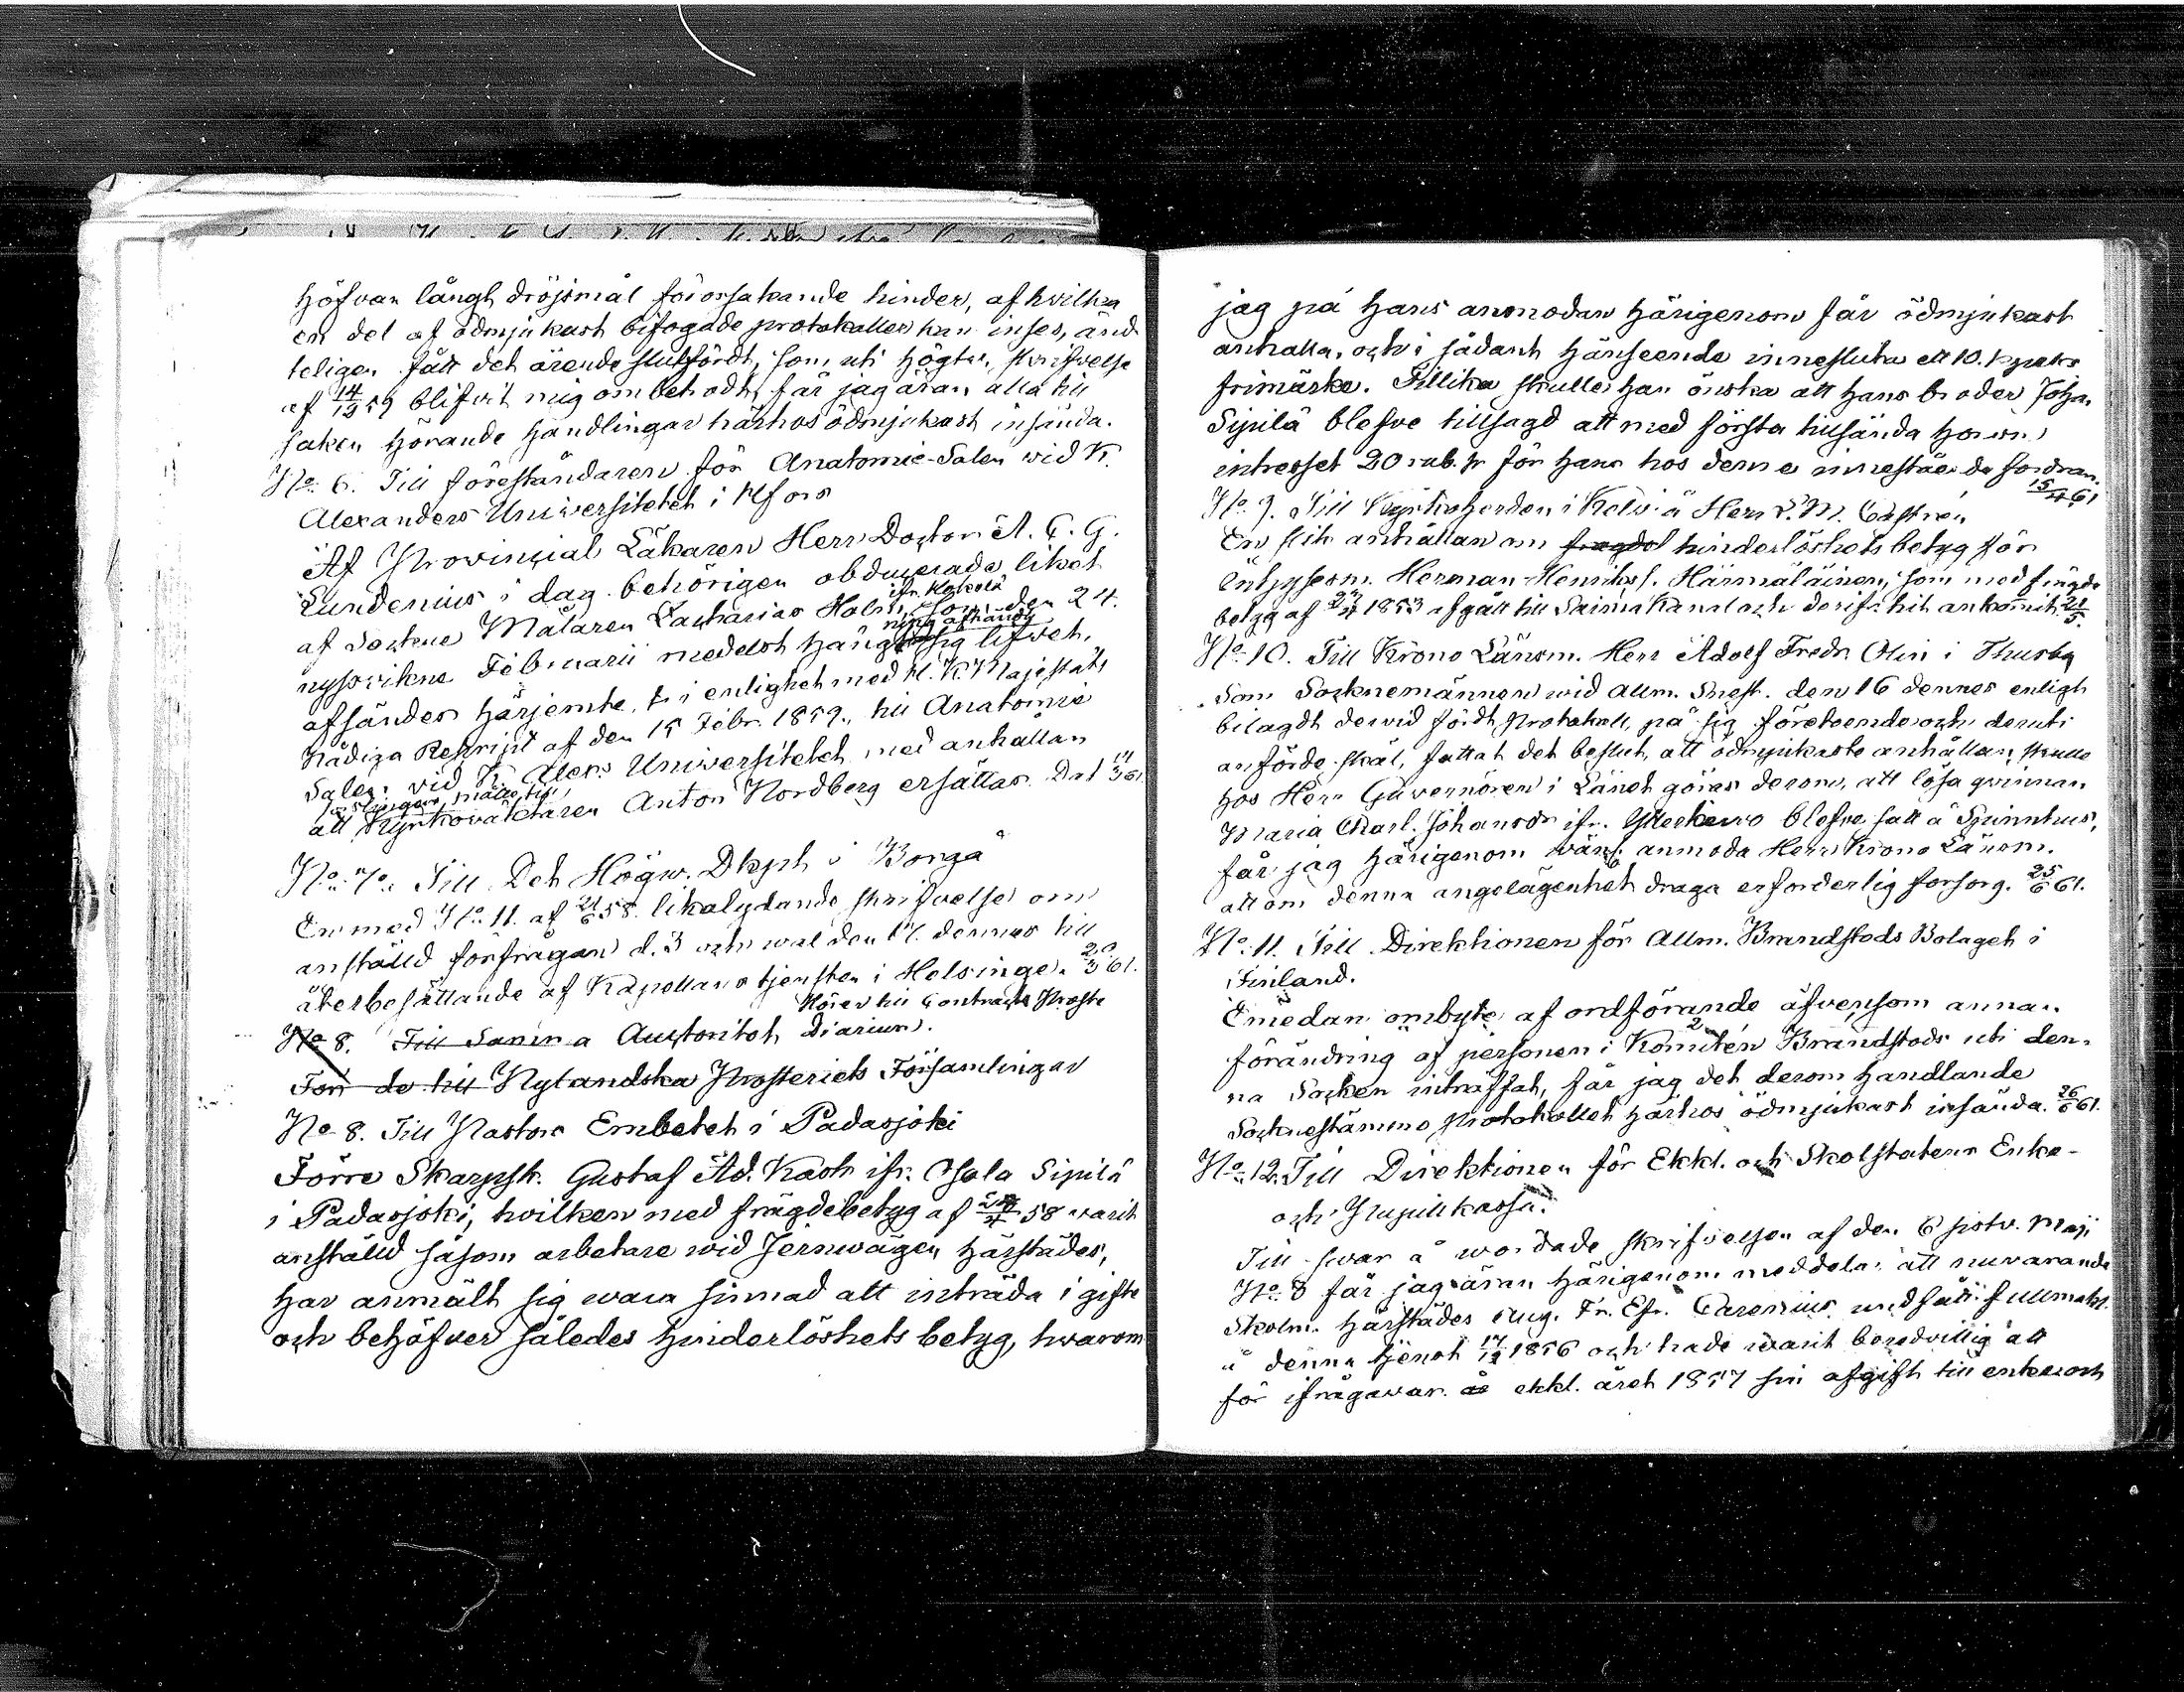 höfvan långt dröjsmål förorsakande hinder, af hvilka
en del af ödmjukast bifogade protokoller kan inses, änd
teligen fått det ärende slutfördt, som uti högtn. skrifvelse
af 14/12 59 blifvit mig ombetrodt, får jag äran alla till
saken hörande handlingar härhos ödmjukast insända.
No. 6. Till föreståndaren för Anatomie-Salen wid K.
Alexanders Universitetet i Hfors
Af Provincial Läkaren Herr Doctor A. F. G.
Lundenius i dag behörigen obducerade liket
ifr. Kokola
af Sockne Målaren Zacharias Holm, som den 24.
ning afhändt
nyssvikne Februarii medelst häng sig lifvet,
afsändes härjemte, i enlighet med H. K. Majestäts
Nådiga Rescript af den 15 Febr. 1859., till Anatomie
Salen vid K. Alex. Universitetet med anhållan
att Kyrkovaktaren Anton Nordberg ersättas. Dat 14/3 61.
No. 7. Till Det Högw. Dkpt i Borgå
En med No. 11. af 21/6 58. likalydande skrifvelse om
anställd förfrågan d. 3 och wal den 17. dennes till
återbesättande af Kapellans tjensten i Helsinge. 20/3 61.
Hörer till Contracts Prosts
No 8. Till Samma Auctoritet Diarium.
För de till Nylandska Prosteriets Församlingar
No 8. Till Pastors Embetet i Padasjoki
Förre Skarpsk. Gustaf Ad. Rask ifr. Osola Sipilä
i Padasjoki, hvilken med frägdebetyg af 58 varit
anställd såsom arbetare wid Jernwägen härstädes,
har anmält sig wara sinnad att inträda i gifte
och behöfver således hinderlöshets betyg, hwarom
jag på hans anmodan härigenom får ödmjukast
anhålla, och i sådant hänseende innesluta ett 10. kopeks
frimärke. Tillika skulle han önska att hans broder Johan
Sipilä blefve tillsagd att med första tillsända honom
intresset 20 rub. sr för hans hos denne innestående fordran.
15/4 61
No. 9. Till Kyrkoherden i Kelviå Herr L. M. Castrén
En slik anhållan om fragdeb hinderlöshets betyg för
Herman Henrikss. Härmäläinen, som med frägde
betyg af 1853 afgått till Saima Kanal och derifr. hit ankommit. 21/5.
No. 10. Till Krono Länsm. Herr Adolf Fredr. Olin i Thusby
Som Socknemännen wid allm. Snest. den 16 dennes enligt
bilagdt dervid fördt Protokoll, på sig företeende och deruti
anförde skäl, fattat det beslut, att ödmjukaste anhållan skulle
hos Herr Guvernören i Länet göras derom, att lösa qvinnan
Maria Charl. Johansdr ifr. blefve satt å Spinnhus,
får jag härigenom wänl. anmoda Herr Krono Länsm.
att om denna angelägenhet draga erforderlig försorg. 25/6 61.
No. 11. Till Direktionen för Allm. Brandstods Bolaget i
Finland.
Emedan ombyte af ordförande äfvensom annan
förändring af personen i Komitén Brandstods uti den-
na Socken inträffat, får jag det derom handlande
Socknestämmo Protokollet härhos ödmjukast insända. 26/6 61.
No. 12. Till Direktionen för Ekkl. och Skolstatens Enke-
och Pupillkassa.
Till svar å wördade skrifvelsen af den 6 sistv. Maji
No. 8 får jag äran härigenom meddela, att nuvarande
Skolm. härstädes Aug. Fr. Efr. Carenius undfått fullmakt
å denna tjenst 17/12 1856 och hade varit beredvillig att
för ifrågavar. ekkl. året 1857 sin afgift till enke och